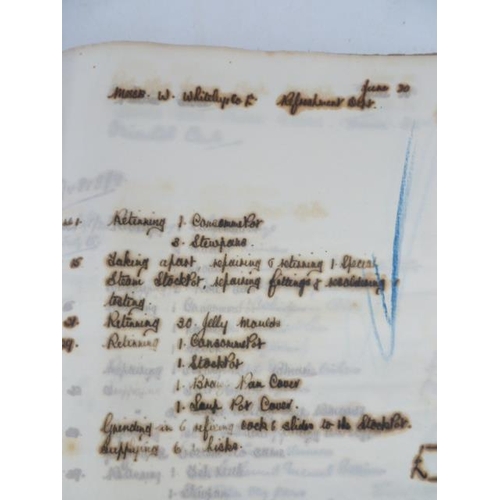 June 20
Messrs. W. Whiteley & Co Refreshment Dept.
Retinning 1. Consommé Pot
3. Stewpans.
Taking apart repairing & retinning 1 Special
Steam StockPot, repairing fittings &
testing.
Retinning 30 Jelly Moulds
29. Retinning 1. Consommé Pot
1. StockPot
1. Braizg Pan Cover
1. Soup Pot Cover
Grinding in 6 refixing cocks & slides to the StockPot.
Supplying 6 Whisks.